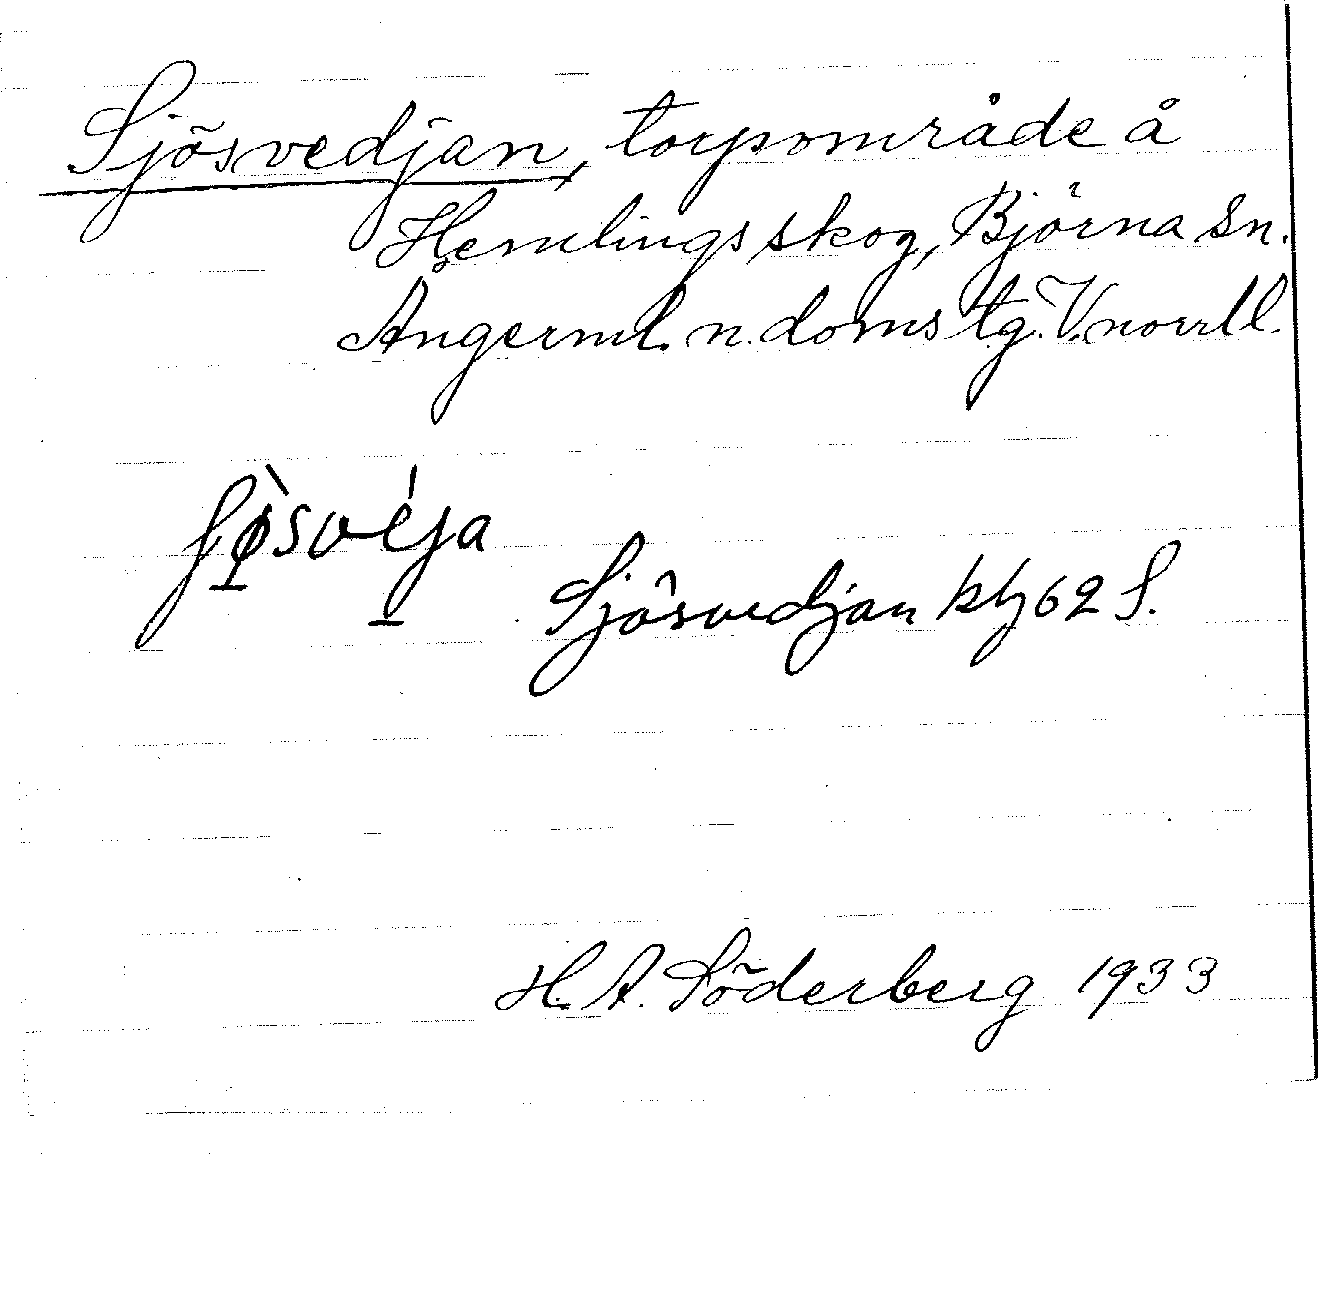 Sjösvedjan, torpområde å
Hemlingsskog, Björna sn.
Ångerml. n. doms tg. V.norrl l.
Sjösvedjan kbl 62 S.
H. A. Söderberg 1933